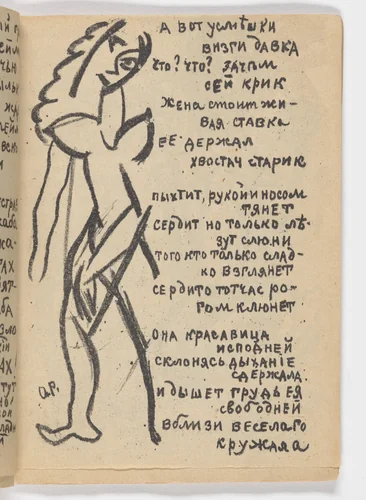 А вот усмѣшки
визги давка
что? что? зачѣм
сей крик
Жена стоит жи-
вая ставка
Её держал
хвостач старик
пыхтит, рукой и носом
тянет
сердит но только лѣ-
зут слюни
того кто только слад-
ко взглянет
сердито тотчас ро-
гом клюнет
она красавица
исподней
склонясь дыханіе
сдержала
и дышет грудь ея
свободней
вблизи веселаго
кружала
О.Р.